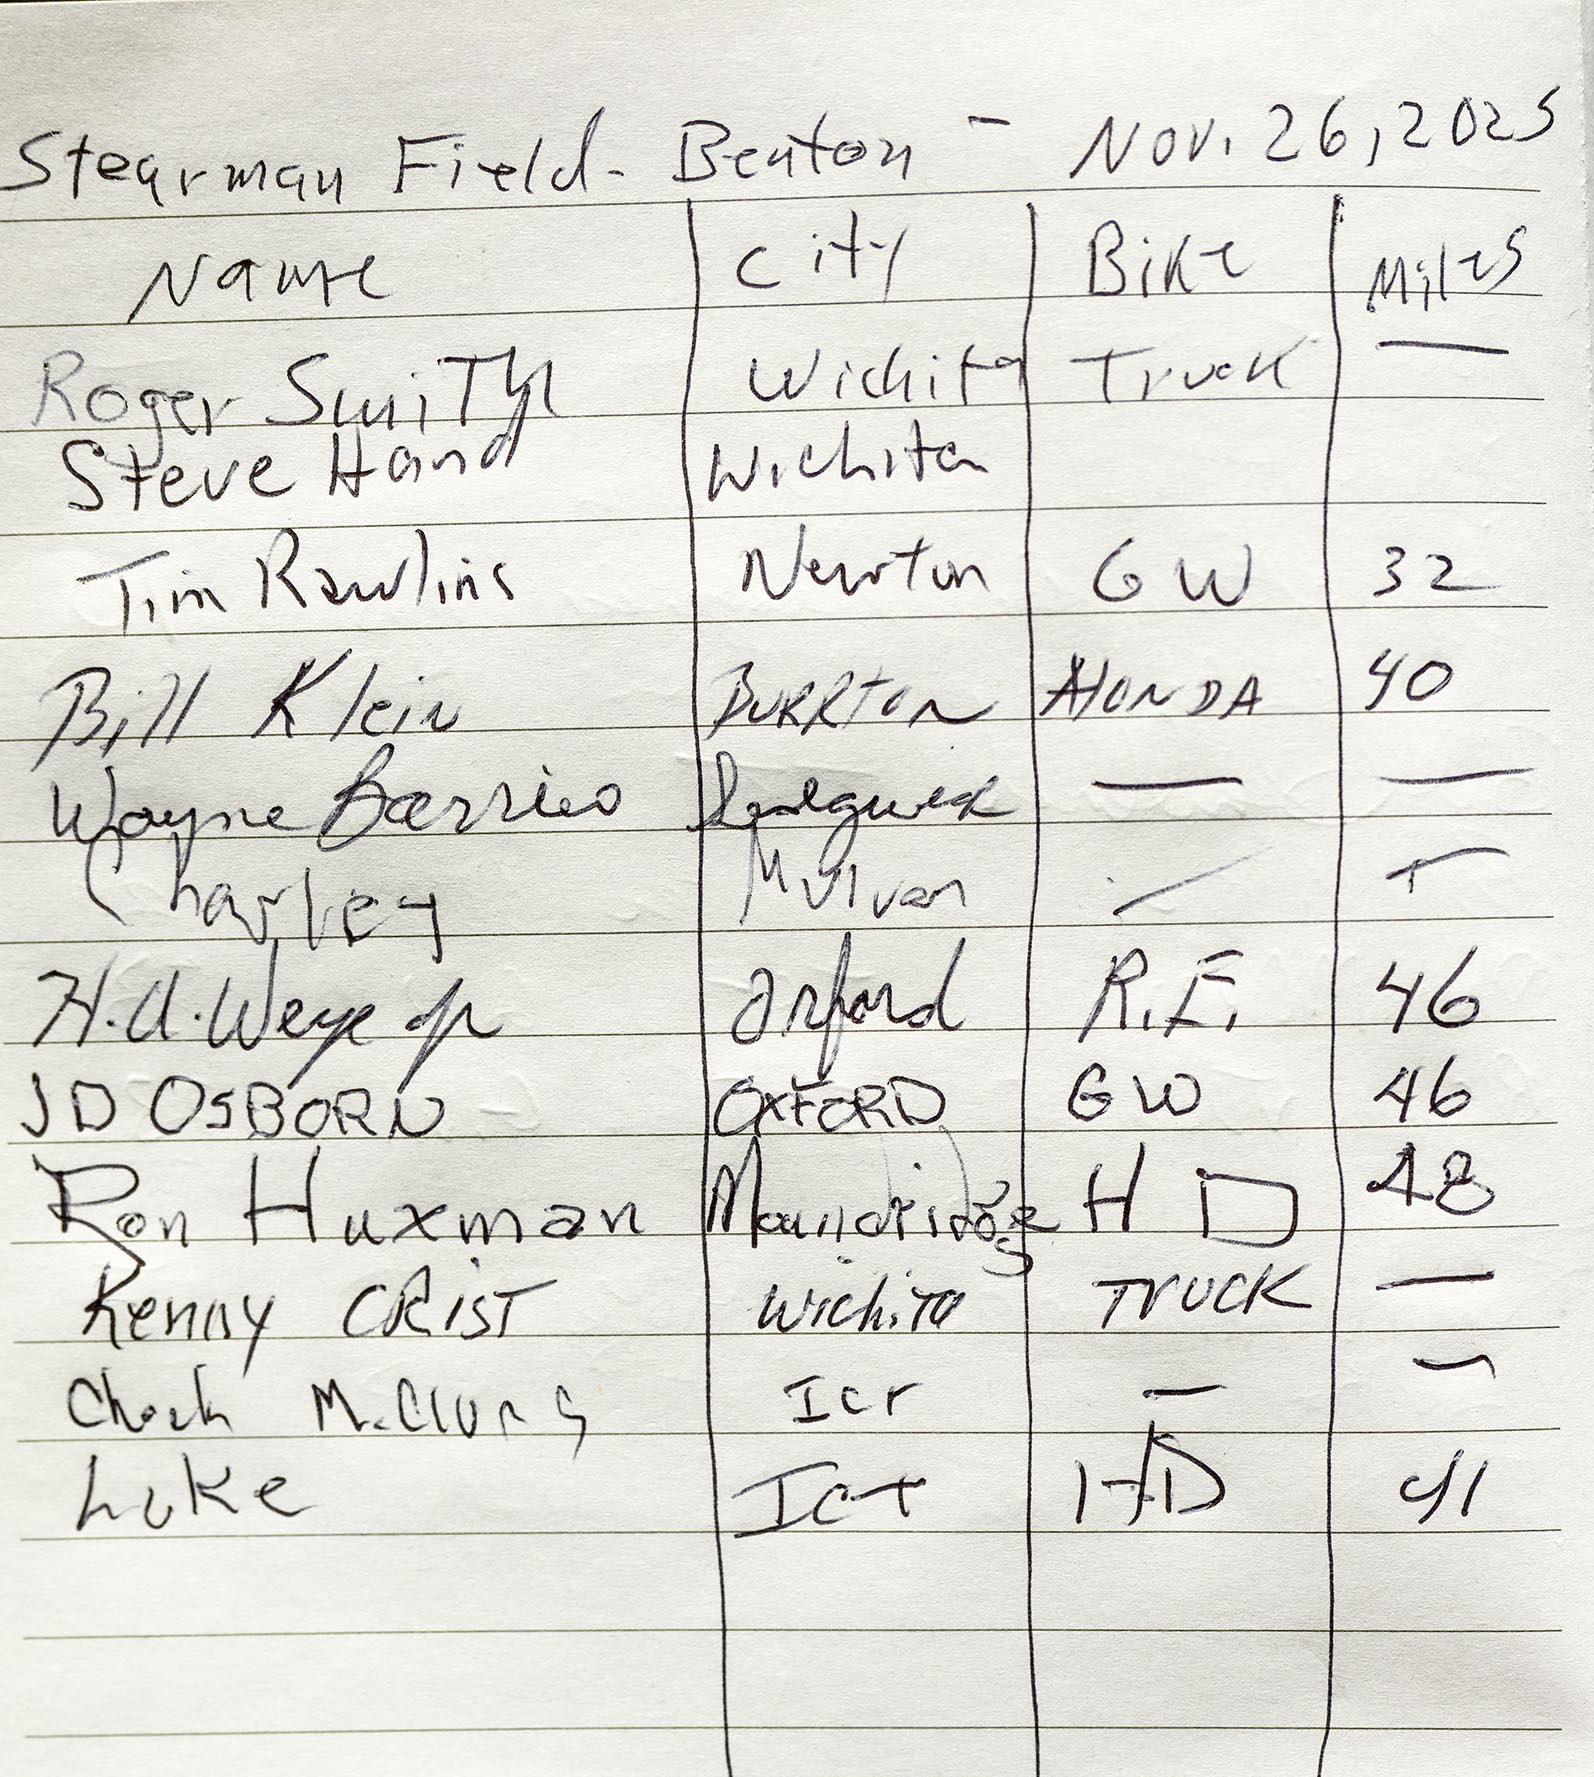 Stearman Field - Benton - Nov. 26, 2025
Name City Bike Miles
Roger Smith Wichita Truck —
Steve Hand Wichita
Tim Rawlins Newton GW 32
Bill Klein BURRTON HONDA 40
Wayne Barries Sedgwick — —
Charley Mulvan — —
H.A. Weye Jr Oxford R.E. 46
JD OSBORN OXFORD GW 46
Ron Huxman Moundridge HD 48
Kenny CRIST Wichita TRUCK —
Chuck McClung Ict — —
Luke Ict HD 41